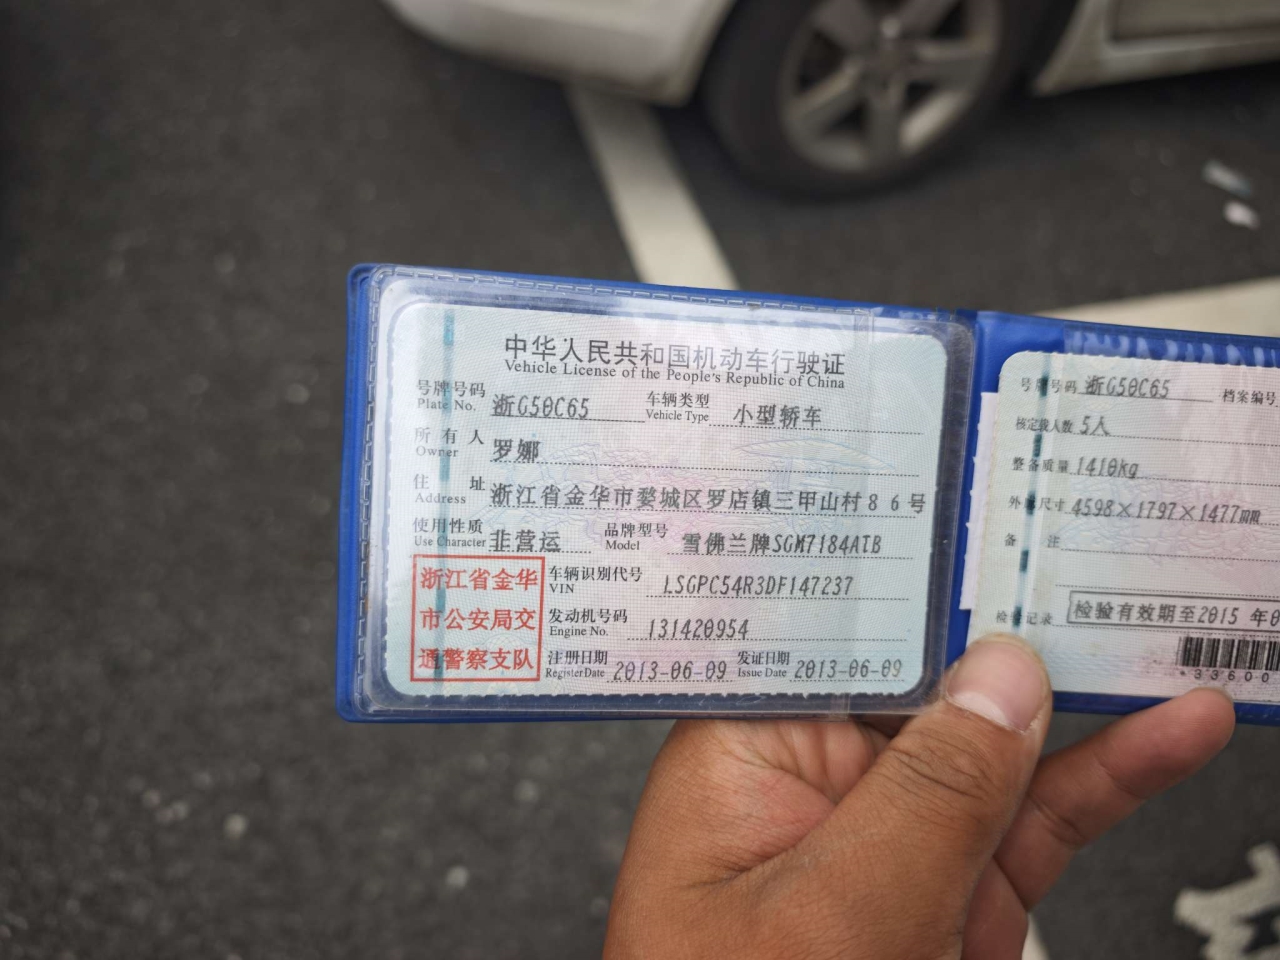 中华人民共和国机动车行驶证
Vehicle License of the People's Republic of China
号牌号码 浙G50C65 车辆类型 小型轿车
Plate No. Vehicle Type
所有人 罗娜
Owner
住址 浙江省金华市婺城区罗店镇三甲山村86号
Address
使用性质 非营运 品牌型号 雪佛兰牌SGM7184ATB
Use Character Model
浙江省金华
市公安局交
通警察支队
车辆识别代号 LSGPC54R3DF147237
VIN
发动机号码 131420954
Engine No.
注册日期 2013-06-09 发证日期 2013-06-09
Register Date Issue Date
号牌号码 浙G50C65 档案编号
核定载人数 5人
整备质量 1410kg
外廓尺寸 4598×1797×1477mm
备注
检验记录 检验有效期至2015 年0
*33600